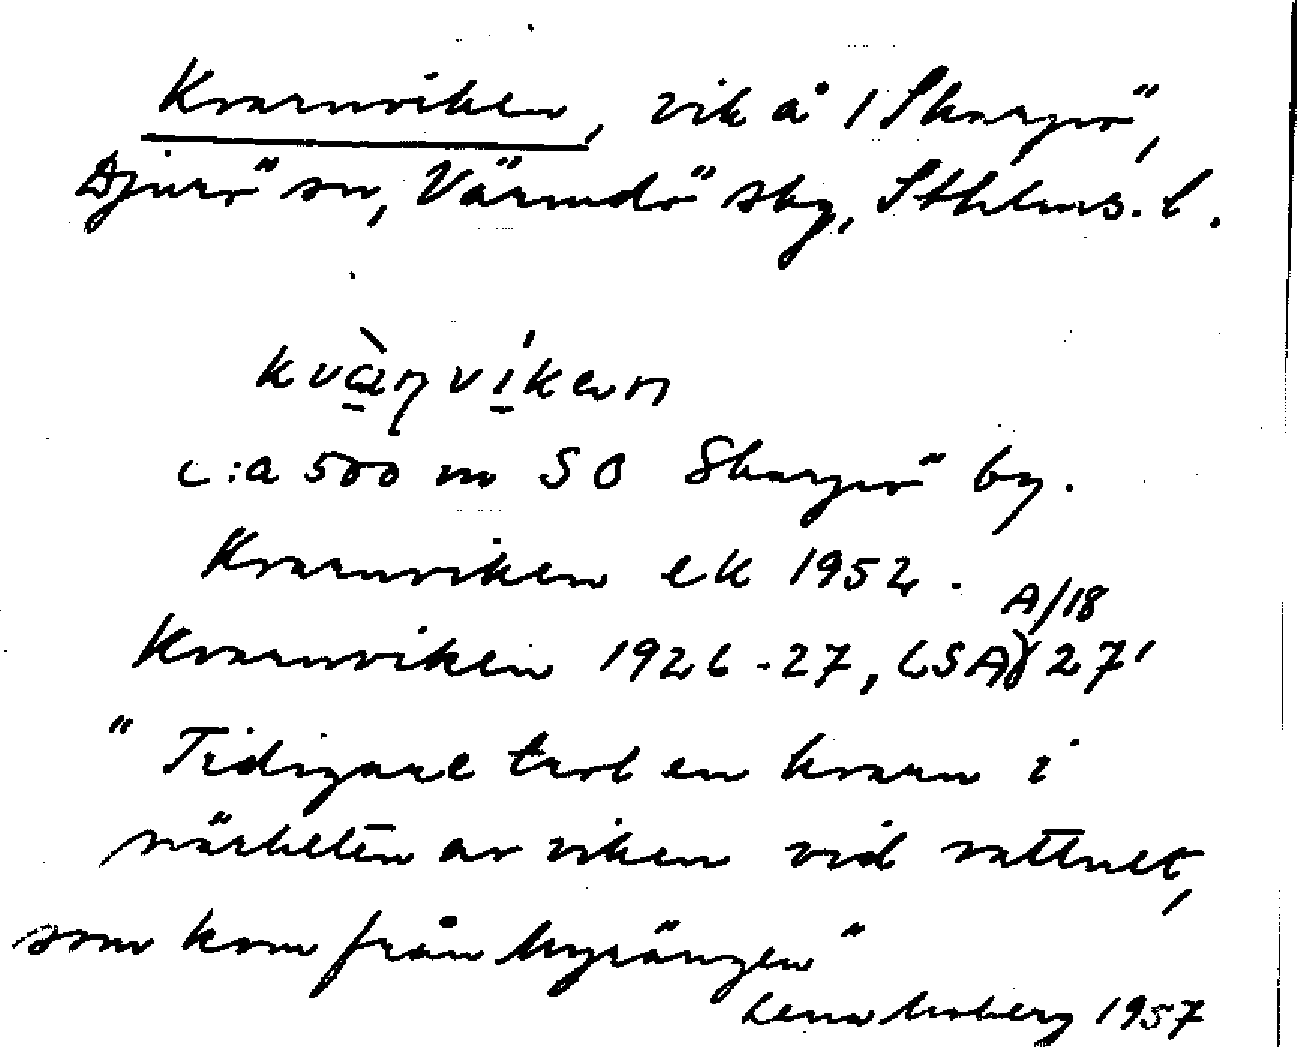 Kvarnviken, vik å 1 Skarpö,
Djurö sn, Värmdö sky, Sthlms. l.
kvàṇvíkan
c:a 500 m SO Skarpö by.
Kvarnviken ek 1952.
A/18
Kvarnviken 1926-27, LSA 27'
"Tidigare trol en kvarn i
närheten av viken vid vattnet,
som kom från Myrängen"
Lena Moberg 1957